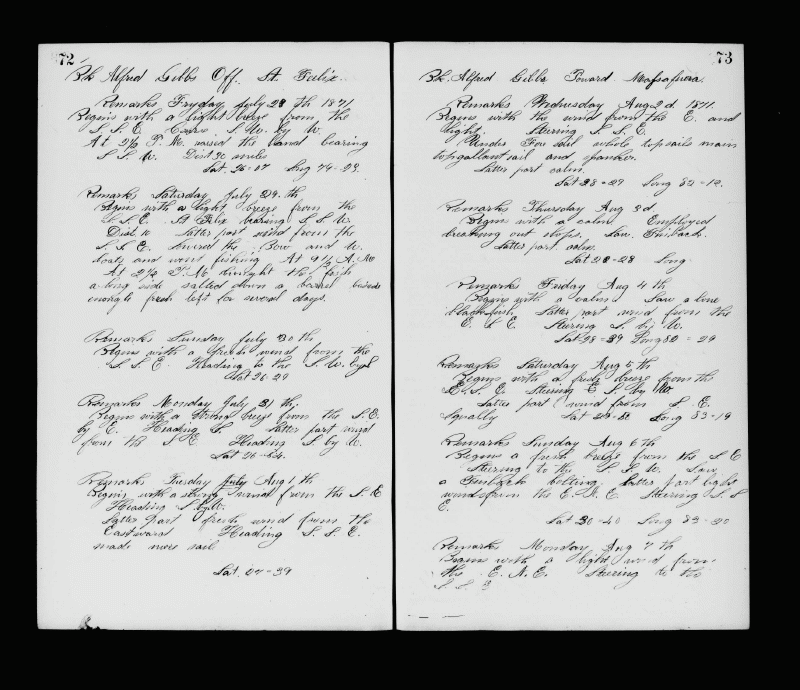 72
Bk Alfred Gibbs Off. St. Felix.
Remarks Fryday July 28 th 1871
Begins with a light breeze from the
S. S. E. S. W. by W.
At 2½ P. M. raised the land bearing
S S W. Dist 30 miles
Lat. 26-07 Lng 79-23
Remarks Saturday July 29. th
Begins with a light breeze from the
S. S. E. St Felix bearing S S W
Dist. 10 Latter part wind from the
S. S. E. lowered the Bow and W.
boats and went fishing At 9½ A. M
At 2½ P. M. brought the fish
a long side salted down a barrel beside
enough fresh left for several days.
Remarks Sunday July 30 th
Begins with a fresh wind from the
S. S. E. Heading to the S. W. by S
Lat 26-29
Remarks Monday July 31 th.
Begins with a strong breeze from the S. E.
by E. Heading S. Latter part wind
from the S E. Heading S by W.
Lat 26-54.
Remarks Tuesday July Aug 1 th
Begins with a strong wind from the S. E
Heading S by W.
Latter part fresh wind from the
Eastward Heading S. S. E.
made more sail
Lat. 27-39
73
Bk. Alfred Gibbs Toward Massafuera.
Remarks Wednesday Aug 2 d. 1871.
Begins with the wind from the E. and
light. Steering S. S. E.
Under Fore sail whole topsails main
topgallant sail and spanker.
Latter part calm.
Lat 28-27 Long 82-12.
Remarks Thursday Aug 3 d.
Begins with a calm. Employed
breaking out slops. Saw Finback.
Latter part calm.
Lat 28-28 Long
Remarks Friday Aug 4 th
Begins with a calm Saw a lone
blackfish. Latter part wind from the
E. S E. Steering S. by W.
Lat 28-39 Long 82-29
Remarks Saturday Aug 5 th
Begins with a fresh breeze from the
E. S. E. Steering S. by W.
Latter part wind from S. E.
Squally Lat 29-38 Long 83-19
Remarks Sunday Aug 6 th
Begins a fresh breeze from the S E
Steering to the S. S W. Saw
a Finback Latter part light
wind from the E. N. E. Steering S. S
E.
Lat 30-40 Long 83-20
Remarks Monday Aug 7 th
Begins with a light wind from
the E. N. E. Steering to the
S. S. E